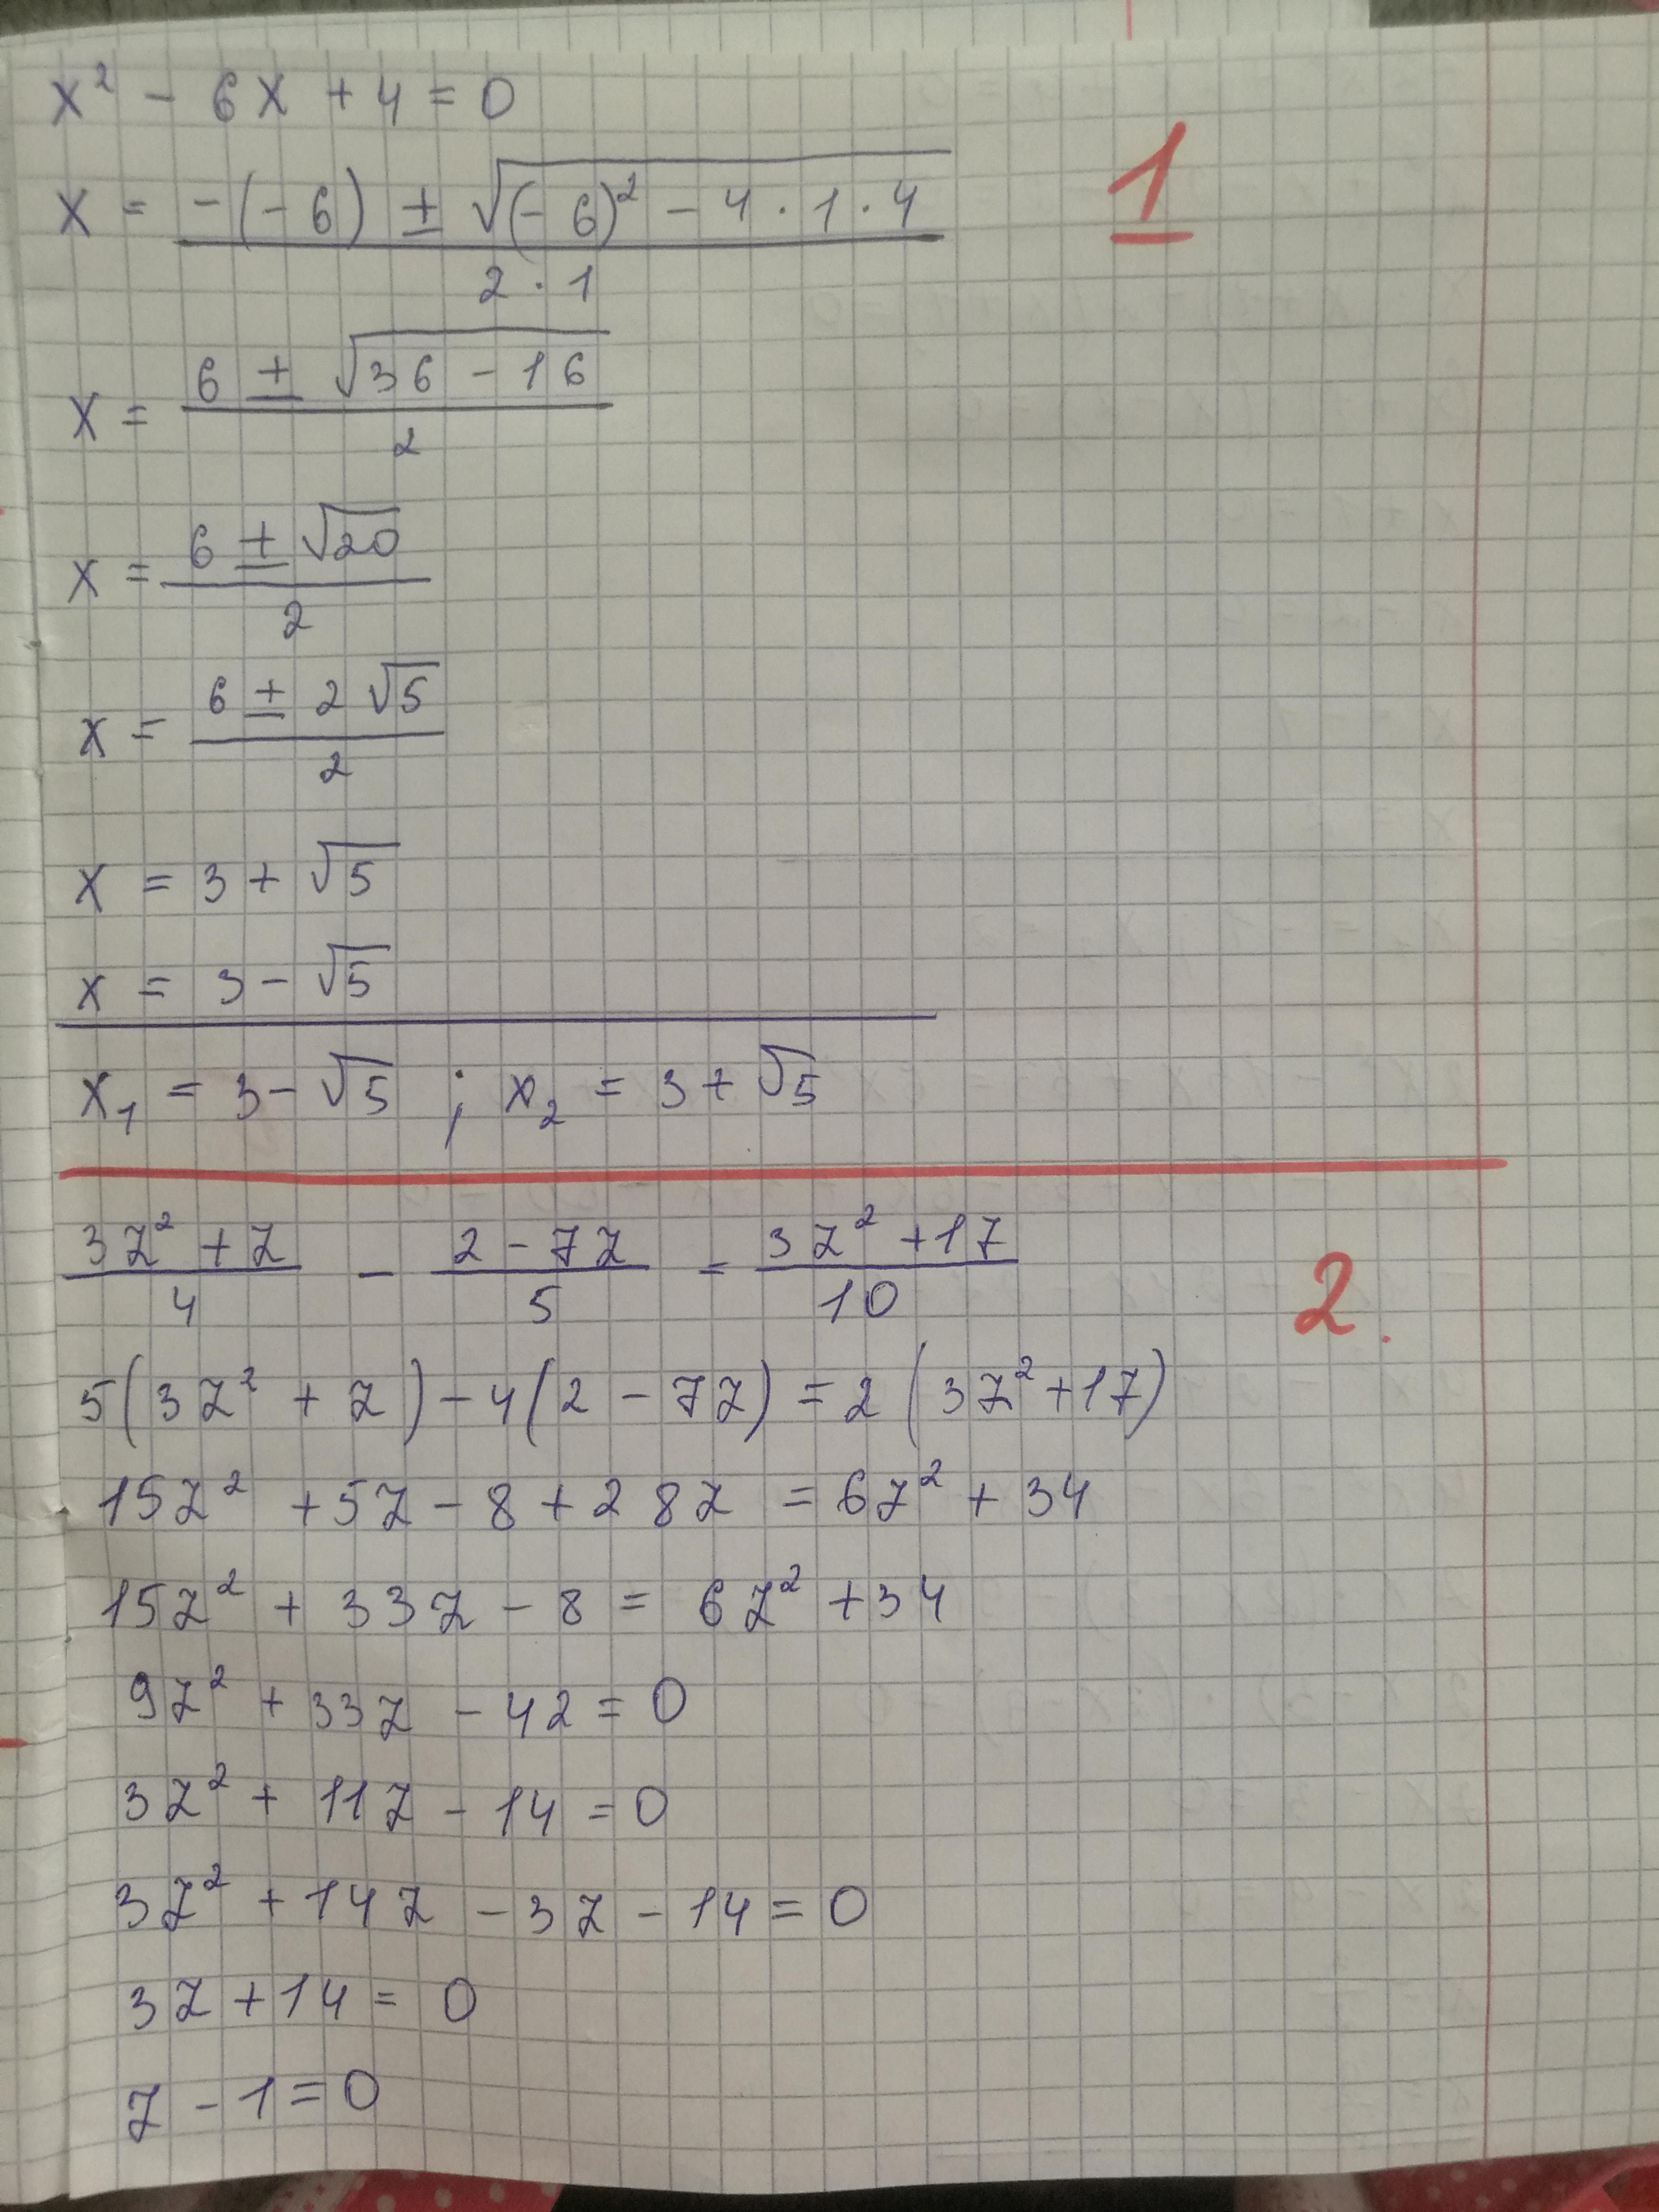 x² - 6x + 4 = 0
1
x = (-(-6) ± √((-6)² - 4 · 1 · 4)) / (2 · 1)
x = (6 ± √(36 - 16)) / 2
x = (6 ± √20) / 2
x = (6 ± 2√5) / 2
x = 3 + √5
x = 3 - √5
x₁ = 3 - √5 ; x₂ = 3 + √5
(3z² + z) / 4 - (2 - 7z) / 5 = (3z² + 17) / 10
2.
5(3z² + z) - 4(2 - 7z) = 2(3z² + 17)
15z² + 5z - 8 + 28z = 6z² + 34
15z² + 33z - 8 = 6z² + 34
9z² + 33z - 42 = 0
3z² + 11z - 14 = 0
3z² + 14z - 3z - 14 = 0
3z + 14 = 0
z - 1 = 0